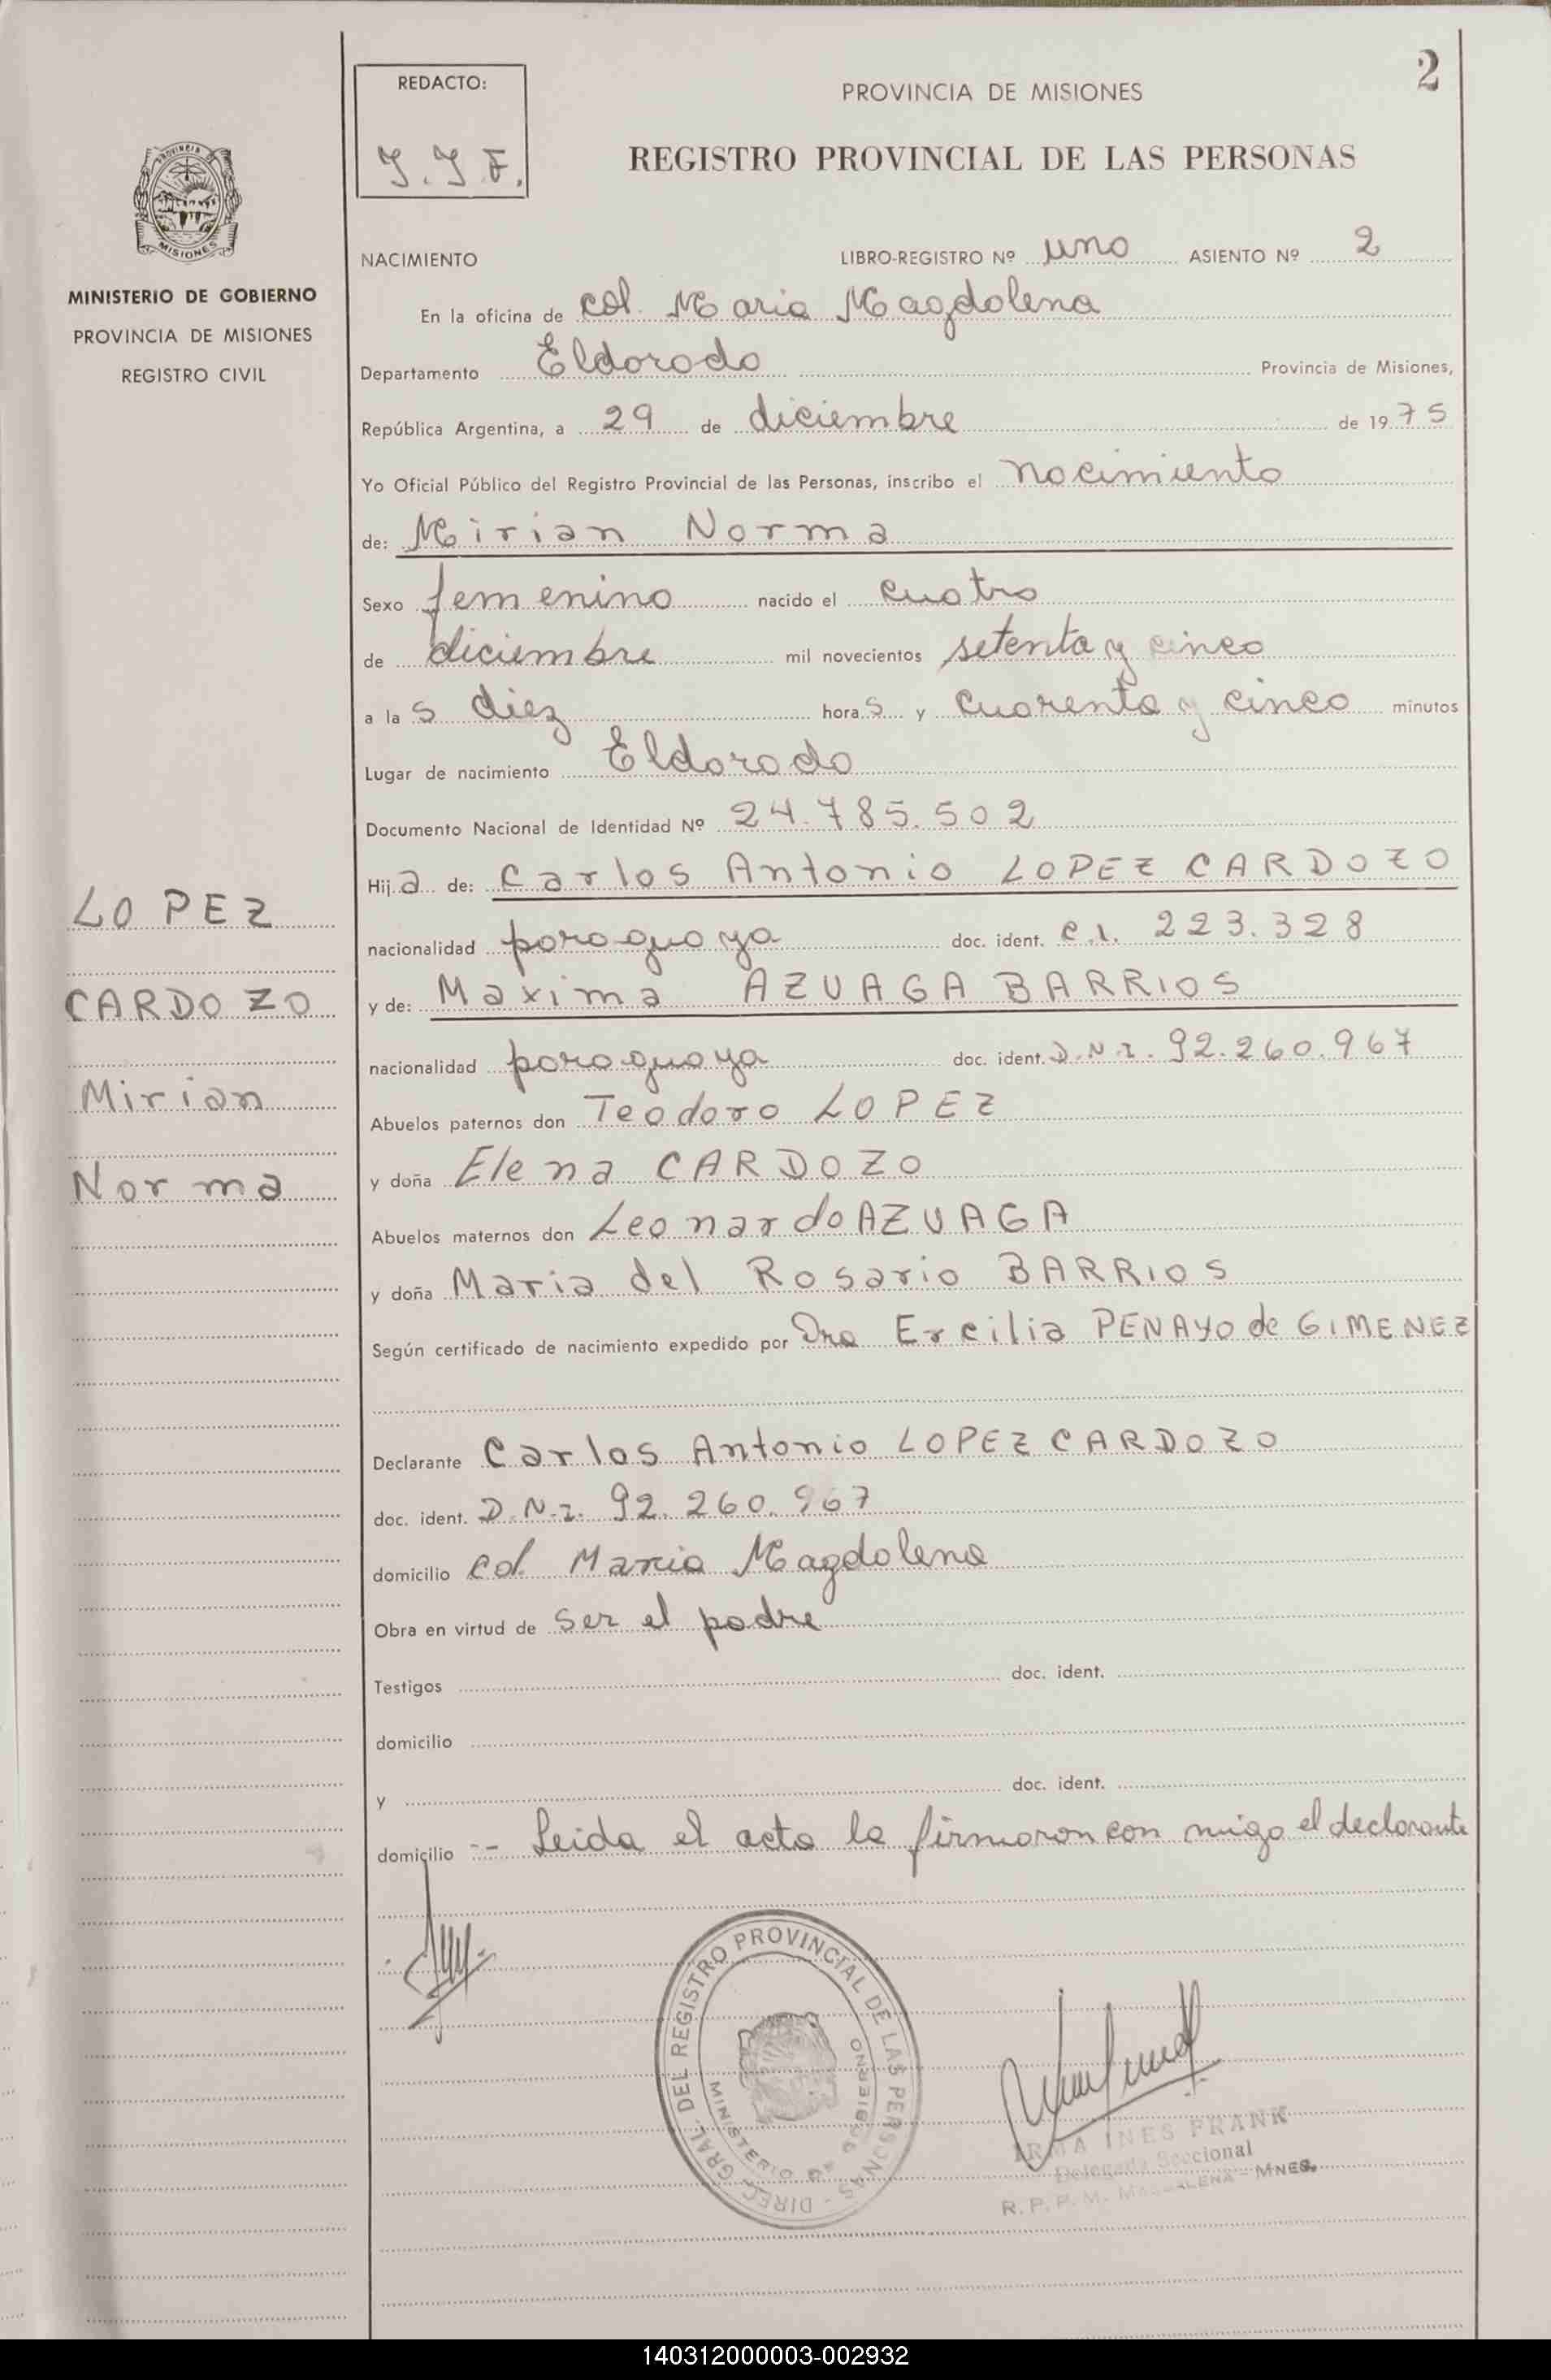 2
REDACTO:
PROVINCIA DE MISIONES
REGISTRO PROVINCIAL DE LAS PERSONAS
PROVINCIA
MISIONES
MINISTERIO DE GOBIERNO
PROVINCIA DE MISIONES
REGISTRO CIVIL
NACIMIENTO LIBRO-REGISTRO Nº uno ASIENTO Nº 2
En la oficina de Col. Maria Magdalena
Departamento Eldorado Provincia de Misiones,
República Argentina, a 29 de diciembre de 1975
Yo Oficial Público del Registro Provincial de las Personas, inscribo el nacimiento
de: Mirian Norma
Sexo femenino nacido el cuatro
de diciembre mil novecientos setenta y cinco
a las diez horas y cuarenta y cinco minutos
Lugar de nacimiento Eldorado
Documento Nacional de Identidad Nº 24.785.502
Hija de: Carlos Antonio LOPEZ CARDOZO
nacionalidad paraguaya doc. ident. C.I. 223.328
y de: Maxima AZUAGA BARRIOS
nacionalidad paraguaya doc. ident. D.N.I. 92.260.967
Abuelos paternos don Teodoro LOPEZ
y doña Elena CARDOZO
Abuelos maternos don Leonardo AZUAGA
y doña Maria del Rosario BARRIOS
Según certificado de nacimiento expedido por Dra Ercilia PENAYO de GIMENEZ
Declarante Carlos Antonio LOPEZ CARDOZO
doc. ident. D.N.I. 92.260.967
domicilio Col. Maria Magdalena
Obra en virtud de ser el padre
Testigos doc. ident.
domicilio
y doc. ident.
domicilio :- Leida el acta la firmaron con migo el declarante
LOPEZ
CARDOZO
Mirian
Norma
DIREC. GRAL. DEL REGISTRO PROVINCIAL DE LAS PERSONAS -
MINISTERIO DE GOBIERNO
IRMA INES FRANK
Delegada Seccional
R. P. P. M. MAGDALENA - MNES.
140312000003-002932